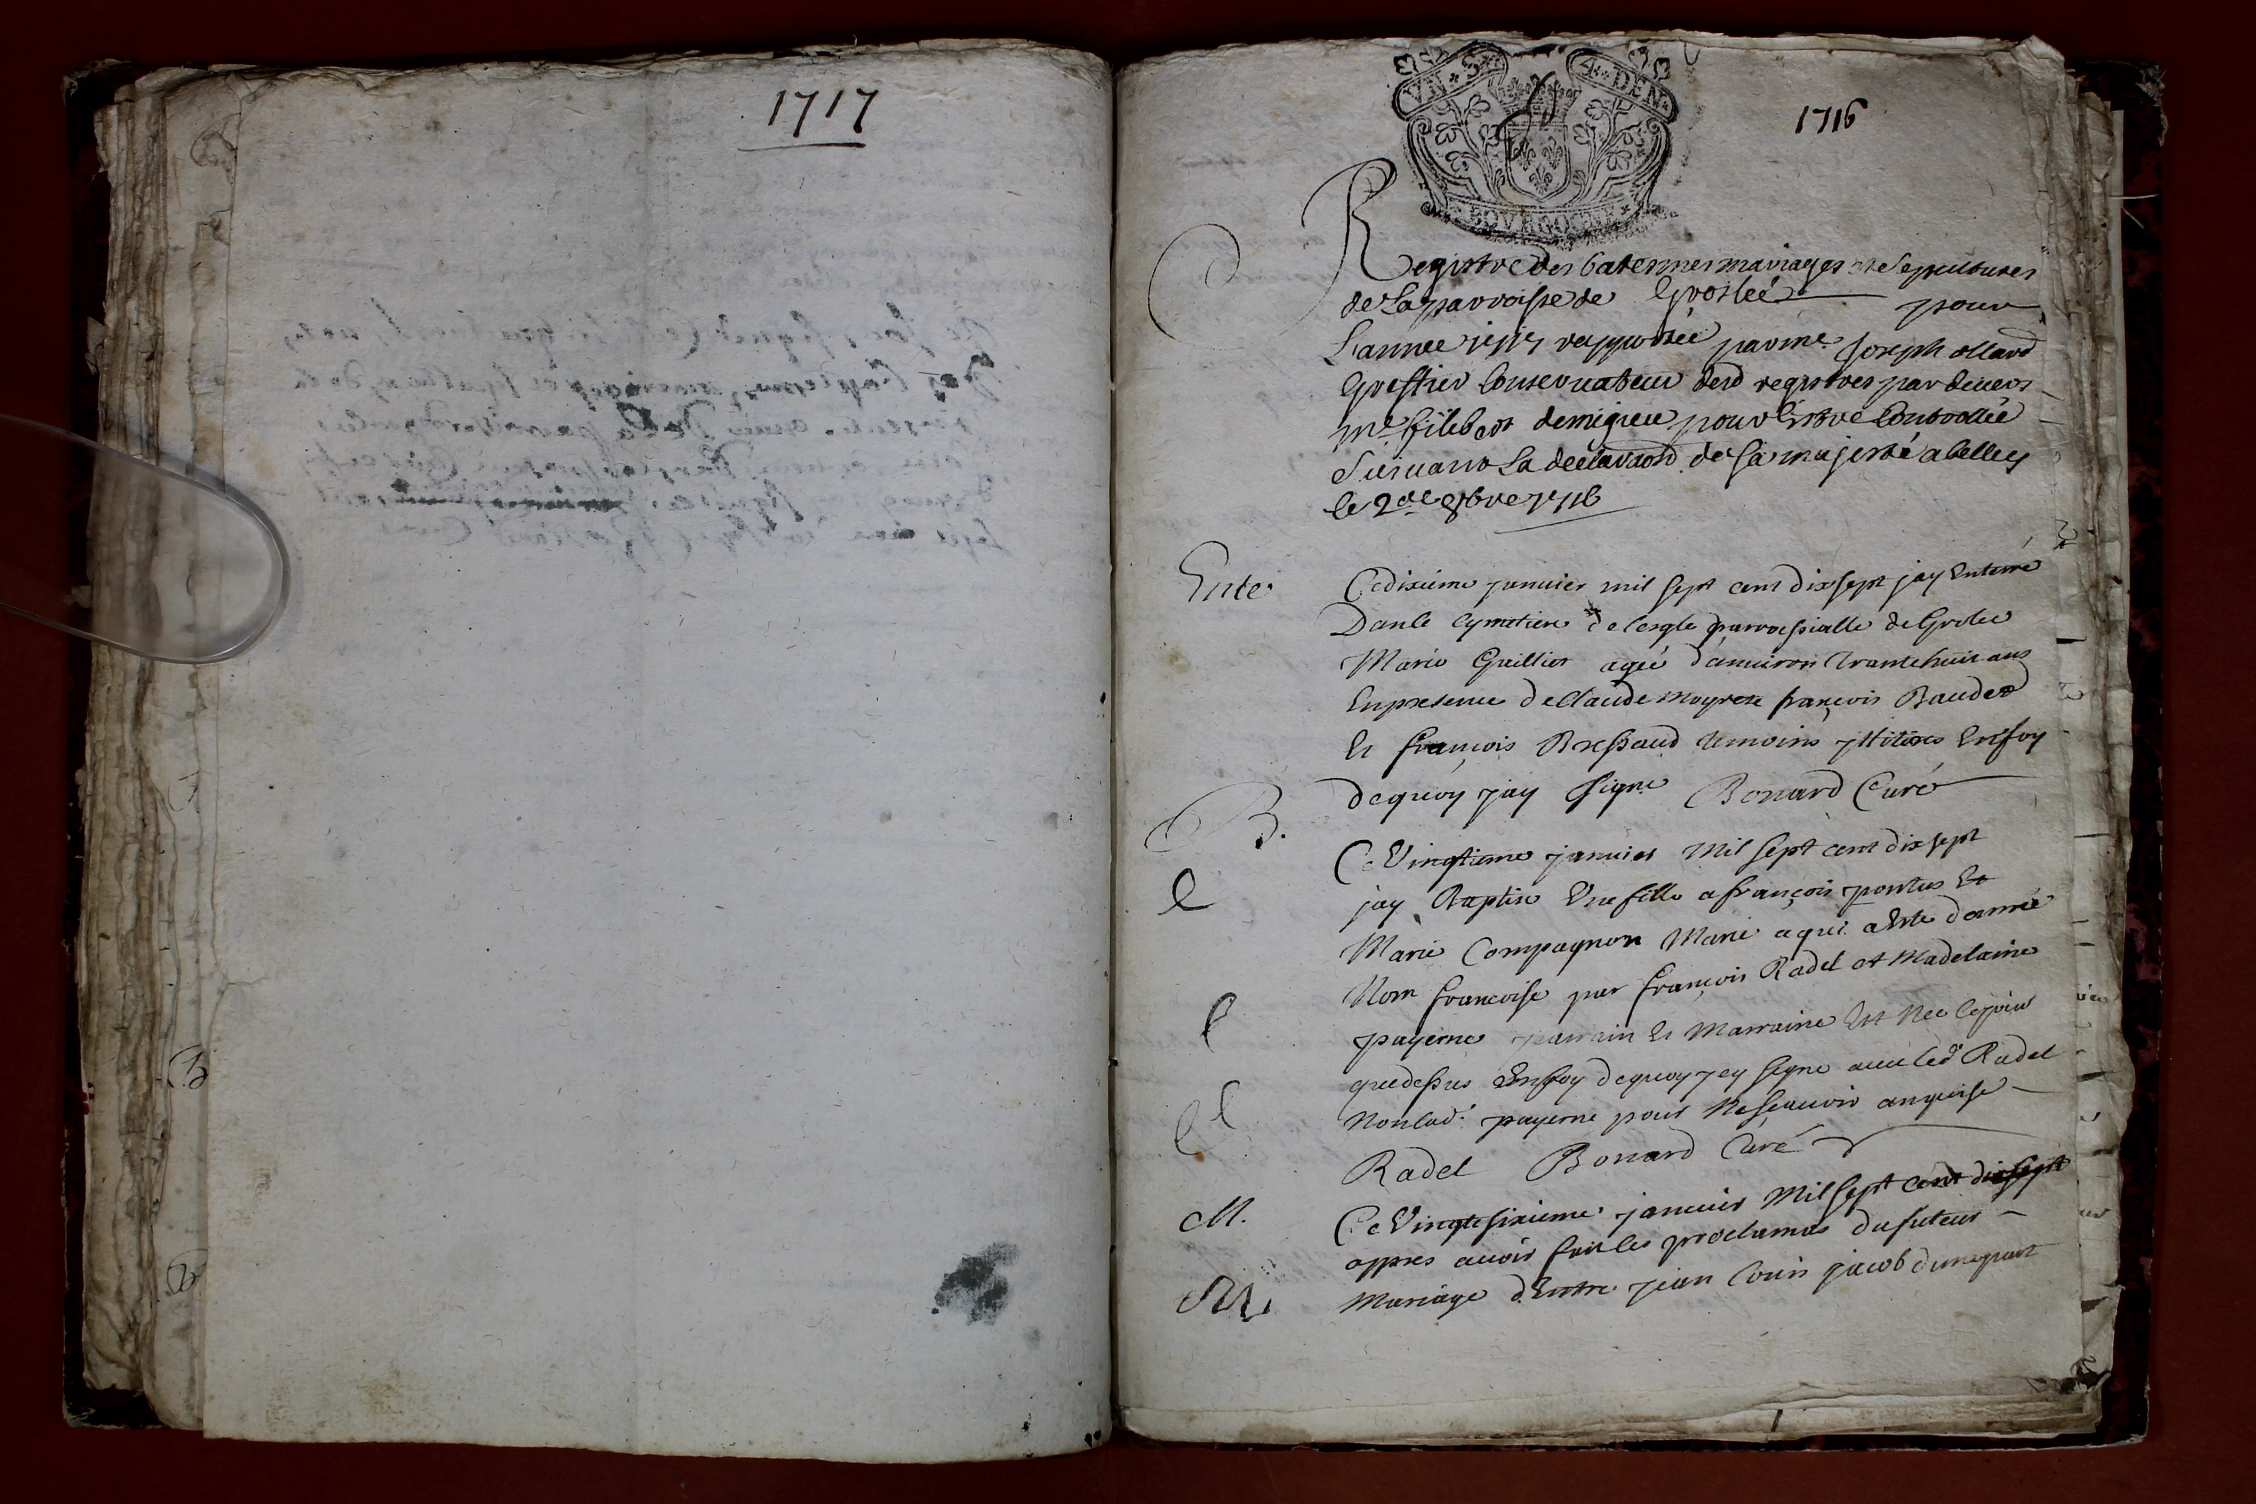 1717
1716
VN S 4 DEN
BOVRGOGNE
Registre des batesmes mariages et Sepultures
de La parroisse de Groslée pour
L'annee 1717 rapportée par me Joseph
Greffier Conservateur desd registres par devers
me filibert demigieu pour Estre Controllée
Suivant La declaraon de Sa majesté a belley
le 2de 8bre 1716
Ente
Ce dixieme janvier mil sept cent dix sept jay Enterré
Dan le Cymetiere de lesgle parroissialle de Grolee
Marie Gaillier ageé d'anviron trantehuit ans
En presence de Claude moyret françois Baudet
Et françois Bressaud temoins En foy
dequoy jay signe Bonard Curé
B.
Ce Vingtieme janvier Mil sept cent dix sept
jay Baptise Une fille a françois pontus Et
Marie Compagnon Marié a qui a Este donné
Nom francoise par françois Radel et Madelaine
payerne parrain Et Marraine Est Nee le jour
que dessus En foy dequoy jey signe avec led Radel
Non lad. payerne pour Ne scavoir anquise
Radel Bonard Curé
M.
Ce Vingtesixieme janvier Mil sept cent dix sept
appres avoir fait les proclamas du futeur
Mariage d'Entre jean Louis jacob dune part
M.